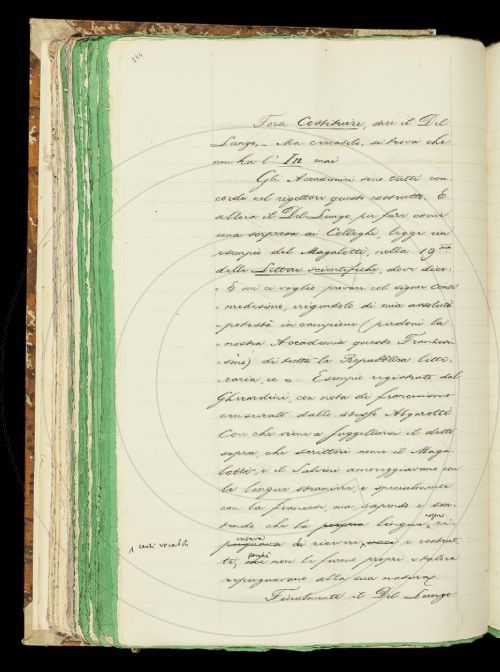 184
Forse Costituire, dice il Del
Lungo. — Ma cercatolo, si trova che
non ha l' In mai
Gli Accademici sono tutti con-
cordi nel rigettare questo costrutto. E
allora il Del Lungo, per fare come
una sorpresa ai Colleghi, legge un
esempio del Magalotti, nella 19.ma
delle Lettere scientifiche, dove dice:
« E mi ci voglio provare col signor Conte
« medesimo, erigendolo di mia assoluta
« potestà in campione (perdoni la
« nostra Accademia questo Francesi-
« smo) di tutta la Repubblica lette-
« raria, ec ». Esempio registrato dal
Gherardini, con nota di francesismo
censurato dallo stesso Algarotti.
Con che viene a suggellarsi il detto
sopra, che scrittori come il Maga-
lotti e il Salvini amoreggiavano con
le lingue straniere, e specialmente
con la francese, ma sapendo e sen-
tendo che la lingua nostra ri-
cusava di ricevere certi vocaboli e costrut-
ti, perché non le furono propri e talora
repugnavano alla sua natura.
Finalmente il Del Lungo